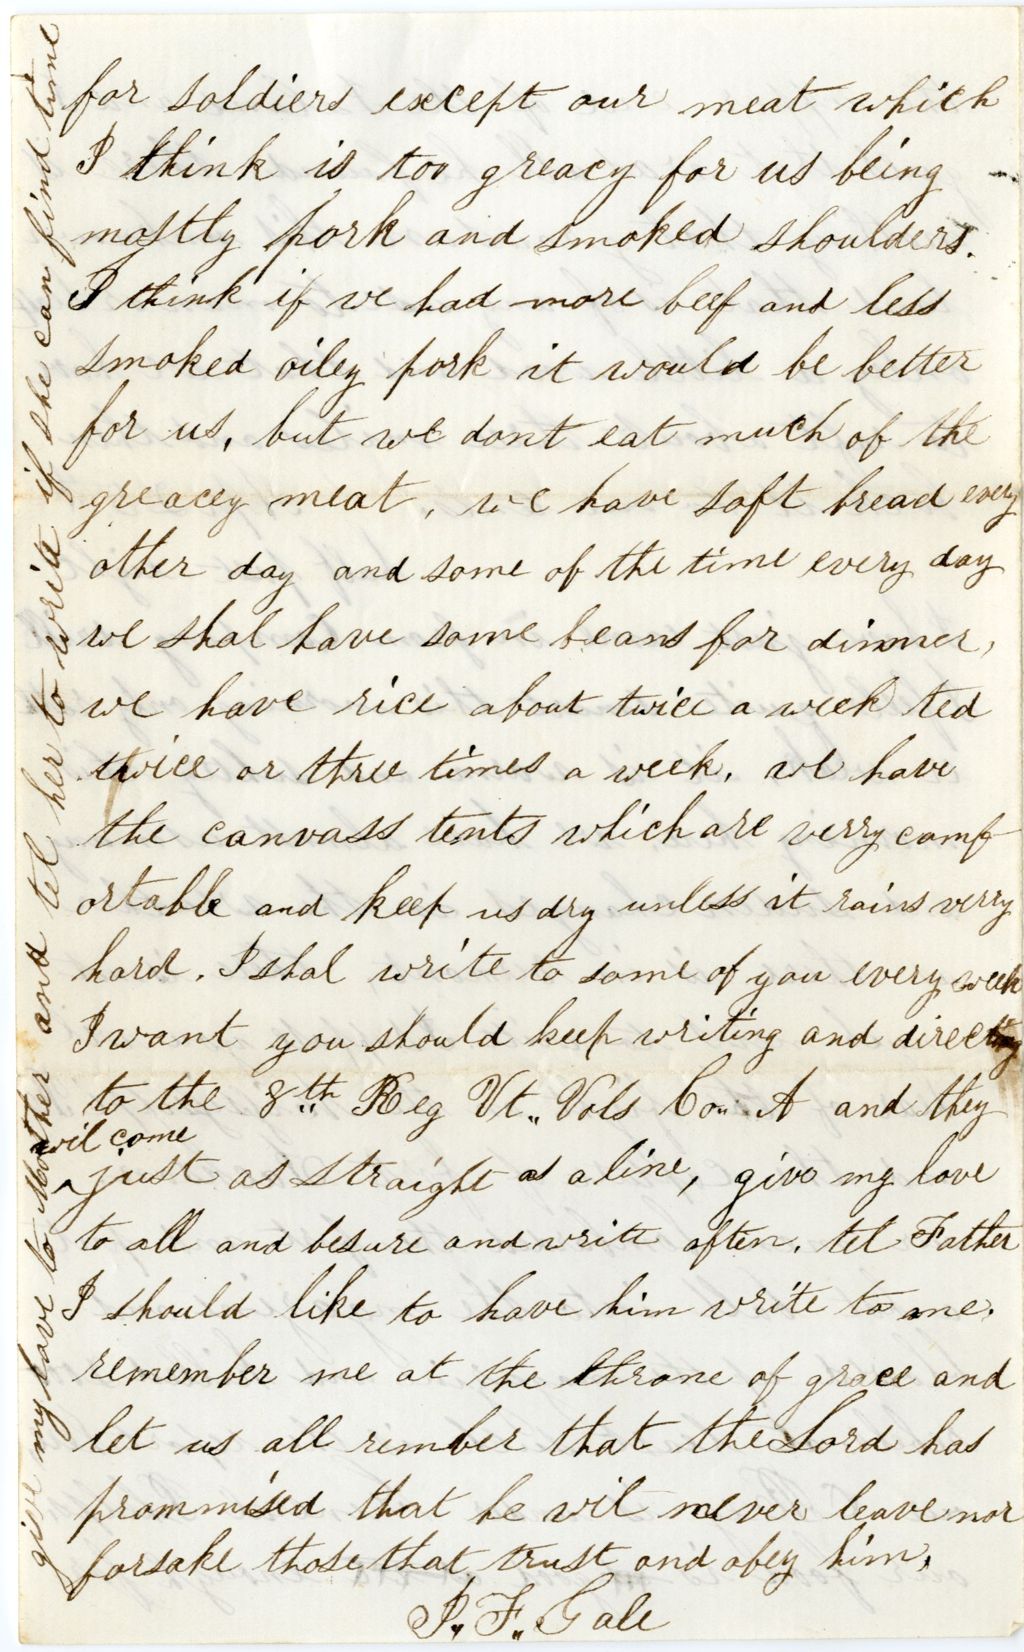 for soldiers except our meat which
I think is too greacy for us being
mostly pork and smoked shoulders.
I think if we had more beef and less
smoked oiley pork it would be better
for us, but we dont eat much of the
greacey meat, we have soft bread every
other day and some of the time every day
we shal have some beans for dinner,
we have rice about twice a week ted
twice or three times a week. we have
the canvass tents which are verry comf
ortable and keep us dry unless it rains verry
hard. I shal write to some of you every week
I want you should keep writing and directing
to the 8th Reg Vt. Vols Co. A and they
wil come
^ just as straight as a line, give my love
to all and besure and write often. tel Father
I should like to have him write to me.
remember me at the throne of grace and
let us all rember that the Lord has
prommised that he wil never leave nor
forsake those that trust and obey him.
P. F. Gale
give my love to Mother and tel her to write if she can find time